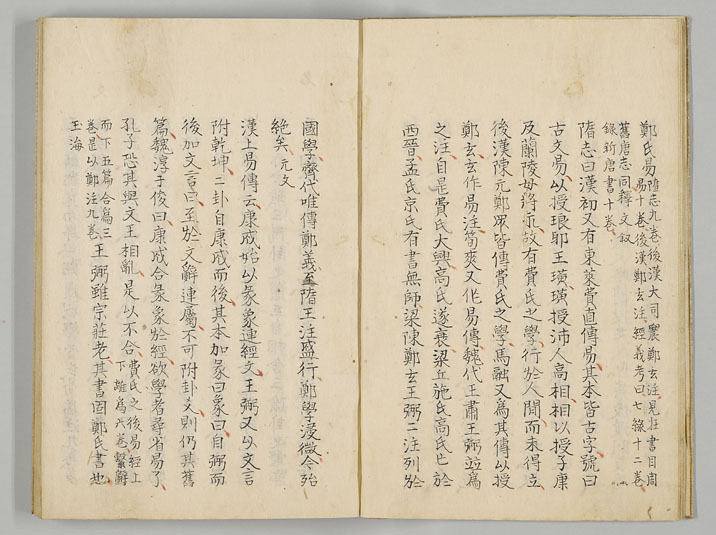 鄭氏易隋志九卷後漢大司農鄭玄注見在書目周
易十卷後漢鄭玄注經義考曰七録十二卷
舊唐志同釋文叙
録新唐書十卷
隋志曰漢初又有東萊費直傳易其本皆古字號曰
古文易以授琅耶王璜璜授沛人高相相以授子康
及蘭陵毋將永故有費氏之學行於人間而未得立
後漢陳元鄭眾皆傳費氏之學馬融又為其傳以授
鄭玄玄作易注荀爽又作易傳魏代王肅王弼並為
之注自是費氏大興高氏遂衰梁丘施氏高氏亡於
西晉孟氏京氏有書無師梁陳鄭玄王弼二注列於
國學齊代唯傳鄭義至隋王注盛行鄭學浸微今殆
絶矣元文
漢上易傳云康成始以彖象連經文王弼又以文言
附乾坤二卦自康成而後其本加彖曰象曰自弼而
後加文言曰至於文辭連屬不可附卦爻則仍其舊
篇魏淳于俊曰康成合彖象於經欲學者尋省易了
孔子恐其與文王相亂是以不合費氏之後易經上
下離為六卷繫辭
而下五篇合為三
卷是以鄭注九卷王弼雖宗莊老其書固鄭氏書也
玉海